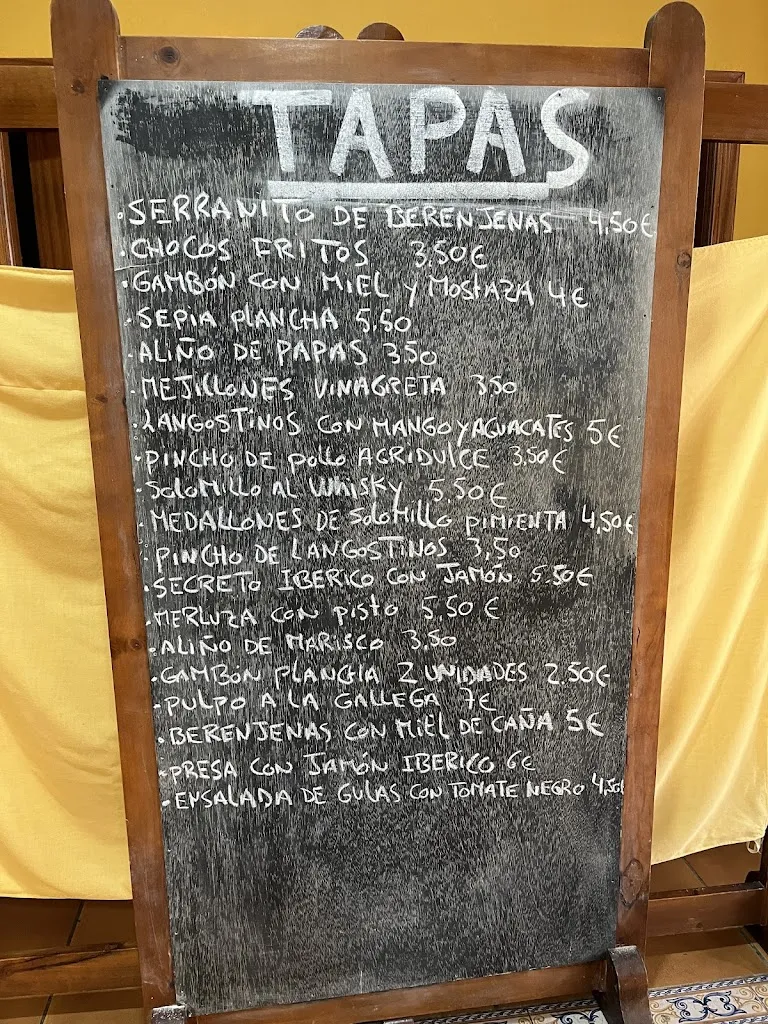 TAPAS
·SERRANITO DE BERENJENAS 4,50€
·CHOCOS FRITOS 3,50€
·GAMBÓN CON MIEL y MOSTAZA 4€
·SEPIA PLANCHA 5,50
·ALIÑO DE PAPAS 3,50
·MEJILLONES VINAGRETA 3,50
·LANGOSTINOS CON MANGO Y AGUACATES 5€
·PINCHO DE POLLO AGRIDULCE 3,50€
·SOLOMILLO AL WHISKY 5,50€
·MEDALLONES DE SOLOMILLO PIMIENTA 4,50€
·PINCHO DE LANGOSTINOS 3,50
·SECRETO IBERICO CON JAMÓN 5,50€
·MERLUZA CON PISTO 5,50€
·ALIÑO DE MARISCO 3,50
·GAMBÓN PLANCHA 2 UNIDADES 2,50€
·PULPO A LA GALLEGA 7€
·BERENJENAS CON MIEL DE CAÑA 5€
·PRESA CON JAMÓN IBERICO 6€
·ENSALADA DE GULAS CON TOMATE NEGRO 4,50€